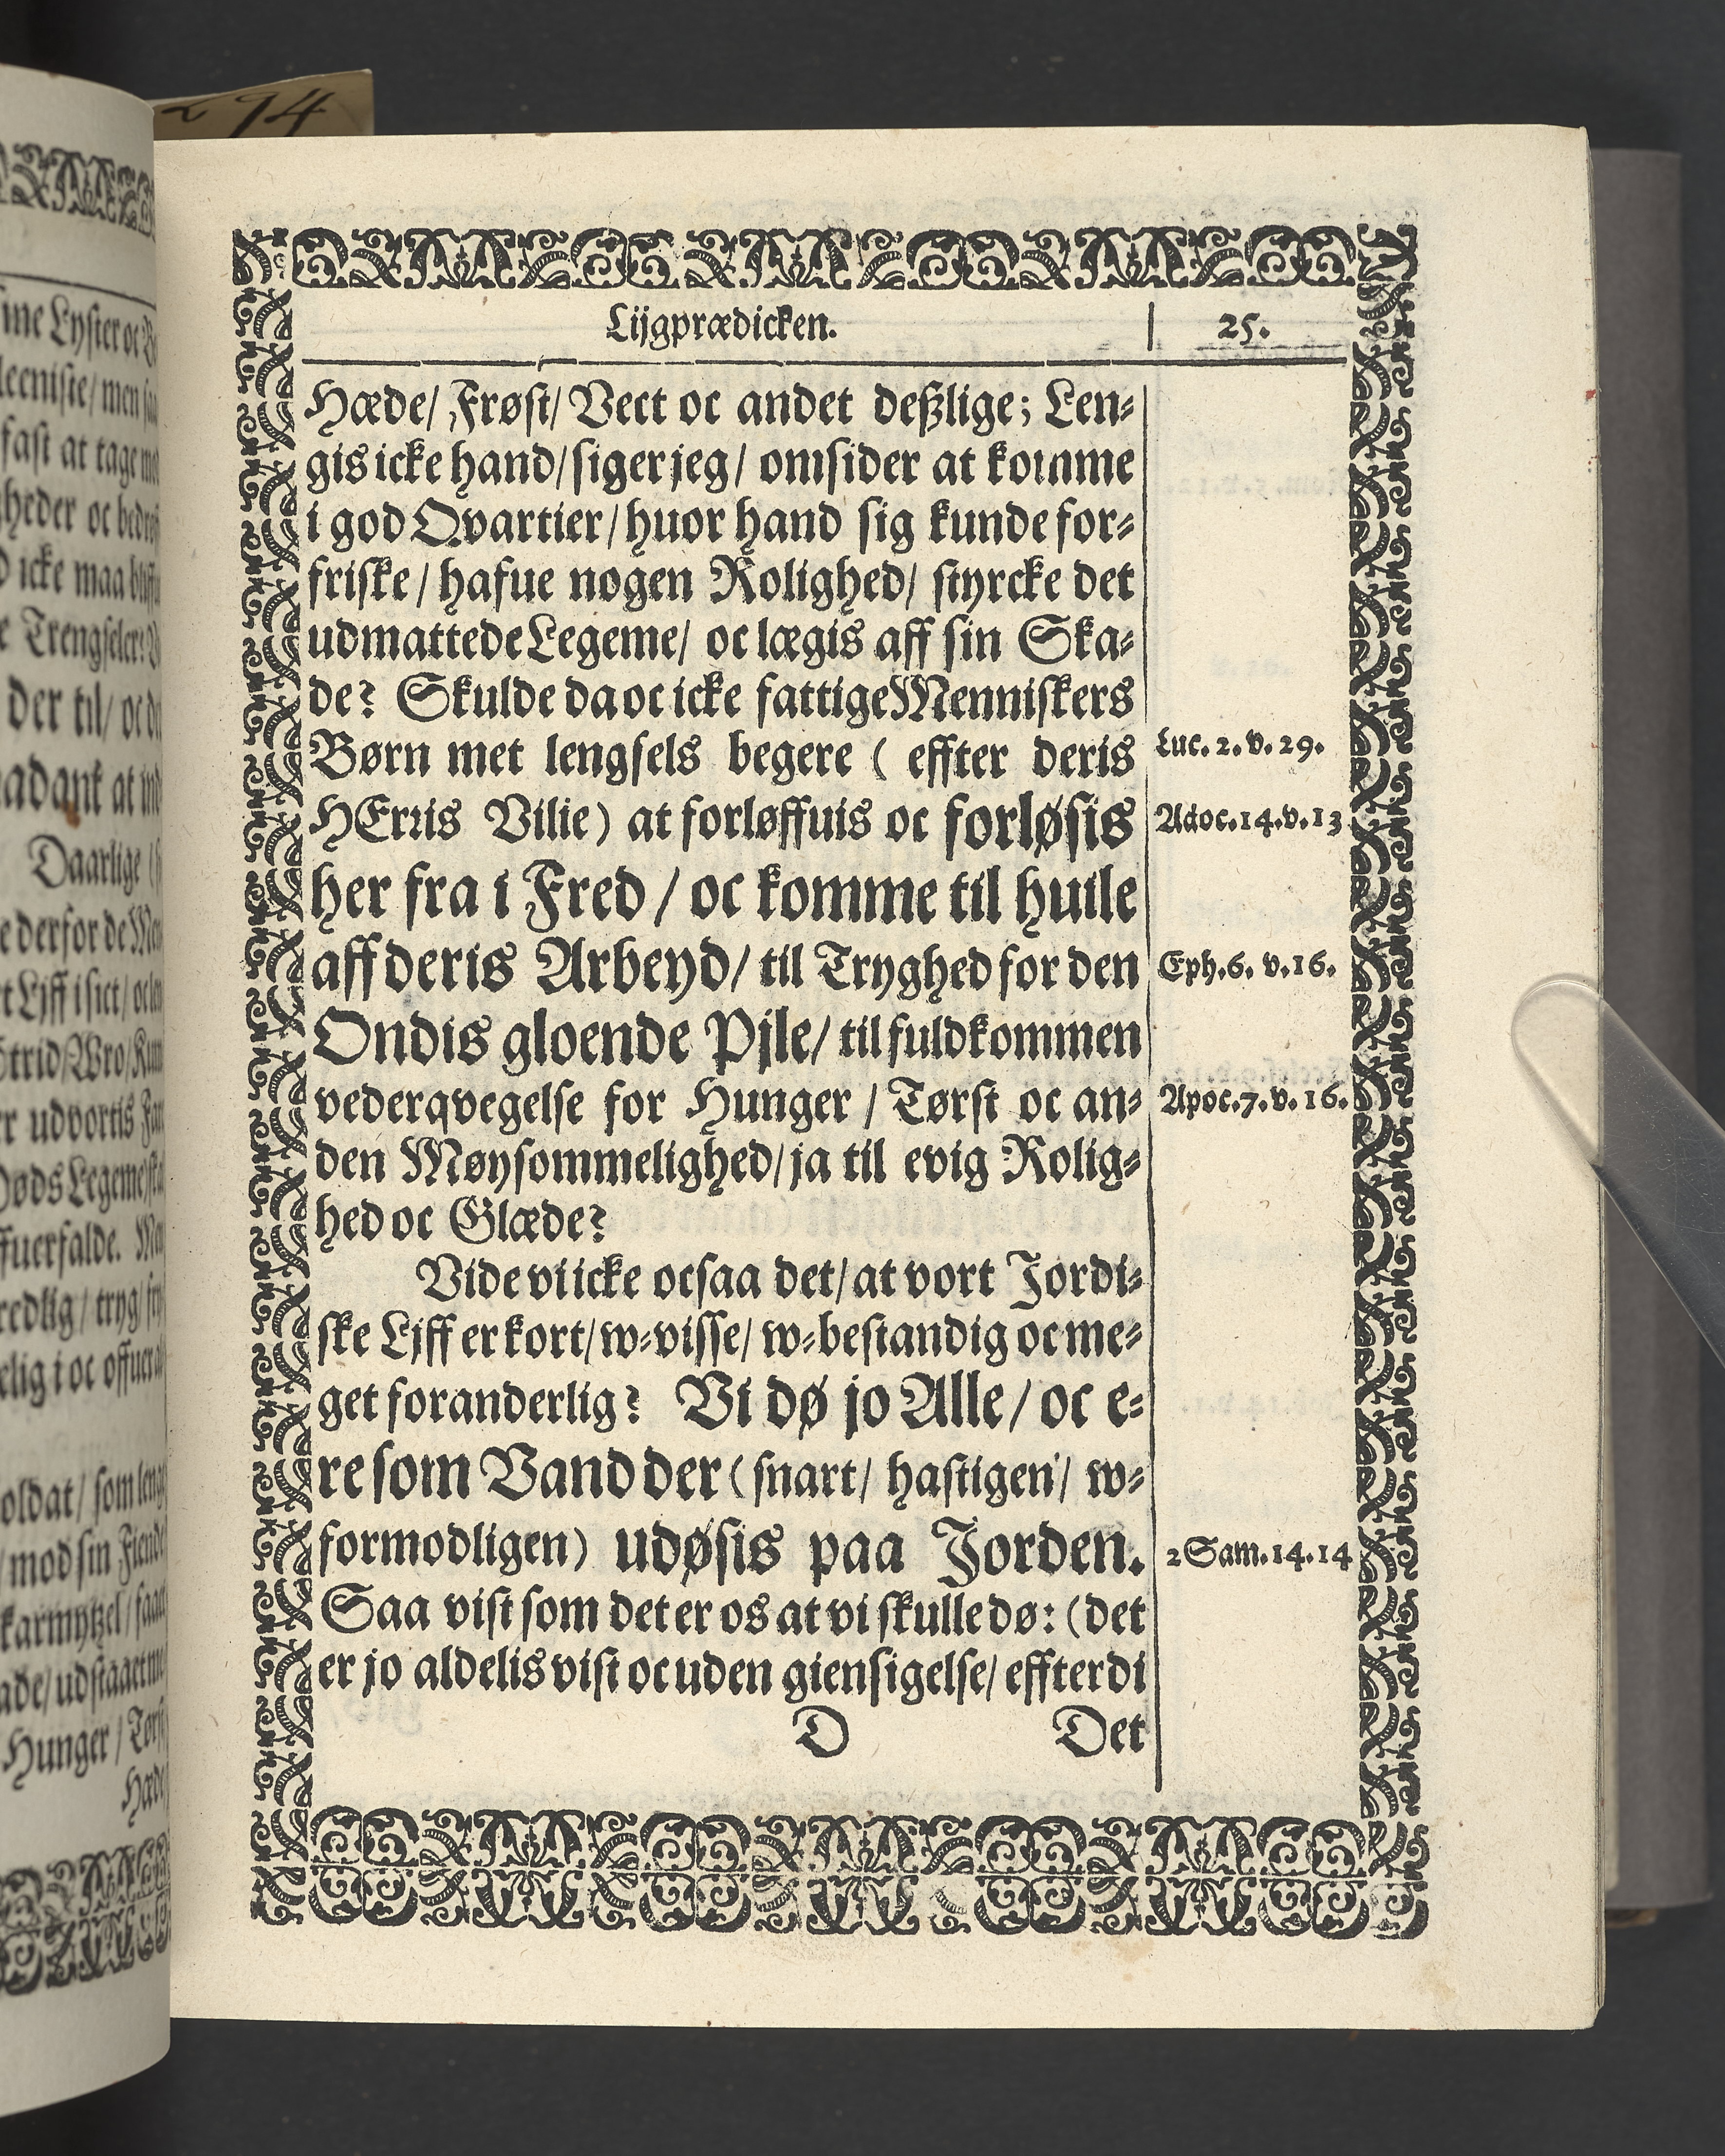 294
Lijgprædicken.
25.
Hæde/ Frøst/ Veet oc andet deßlige; Len-
gis icke hand/ siger jeg/ omsider at komme
i god Qvartier/ huor hand sig kunde for-
friske/ hafue nogen Rolighed/ styrcke det
udmattede Legeme/ oc lægis aff sin Ska-
de? Skulde da oc icke fattige Menniskers
Børn met lengsels begere ( effter deris
HErris Vilie) at forløffuis oc forløsis
her fra i Fred/ oc komme til huile
aff deris Arbeyd/ til Tryghed for den
Ondis gloende Pjle/ til fuldkommen
vederqvegelse for Hunger/ Tørst oc an-
den Møysommelighed/ ja til evig Rolig-
hed oc Glæde?
Vide vi icke ocsaa det/ at vort Jordi-
ske Ljff er kort/ w-visse/ w-bestandig oc me-
get foranderlig? Vi dø jo Alle/ oc e-
re som Vand der (snart/ hastigen/ w-
formodligen) udøsis paa Jorden.
Saa vist som det er os at vi skulle dø: (det
er jo aldelis vist oc uden giensigelse/ effterdi
D
Det
Luc. 2. v. 29.
Adoc. 14. v. 13
Eph. 6. v. 16.
Apoc. 7. v. 16.
2 Sam. 14. 14